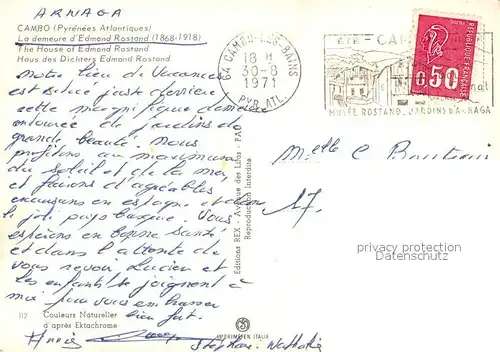 ARNAGA
CAMBO (Pyrénées Atlantiques)
La demeure d'Edmond Rostand (1868-1918)
The House of Edmond Rostand
Haus des Dichters Edmond Rostand
Notre lieu de Vacances
est situé juste derrière
cette magnifique demeure
entourée de jardins de
grande beauté. Nous
profitons au maximum
du soleil et de la mer
et faisons d'agréables
excursions en espagne et dans
le joli pays basque. Vous
espérons en bonne santé
et dans l'attente de
vous revoir, Lucien et
les enfants se joignent à
moi pour vous embrasser
bien fort.
Annie
Stéphane Nathalie
112 Couleurs Naturelles
d'après Ektachrome
IMPRIMÉ EN ITALIE
Editions REX - Avenue des Lilas - PAU
Reproduction Interdite
64 CAMBO-LES-BAINS
18 H
30-8
1971
PYR. ATL.
MUSÉE ROSTAND JARDINS D'ARNAGA
RÉPUBLIQUE FRANÇAISE
0,50
Melle C
17.
watermark protected
Datenschutz